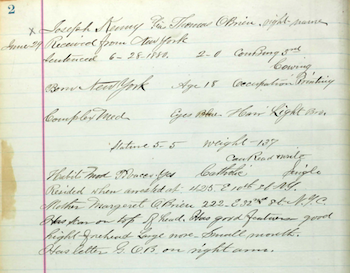 2
x Joseph Kenny Fix Thomas O'Brien, right name
June 29 Received from New York
Sentenced 6-28-1880. 2-0 Con Burg 3rd
Born New York Age 18 Occupation Printing
Complex Med Eyes Blue Hair Light Brn
Stature 5-5 Weight-137
Can Read & write
Habits Mod Catholic Single
Resided when arrested at 425 E 10th St N.Y.
Mother Margaret O'Brien 222-E 32nd St N.Y.C
Has scar on top of head, Has good features good
high forehead Large nose Small mouth.
Has letter G.O.B. on right arm.